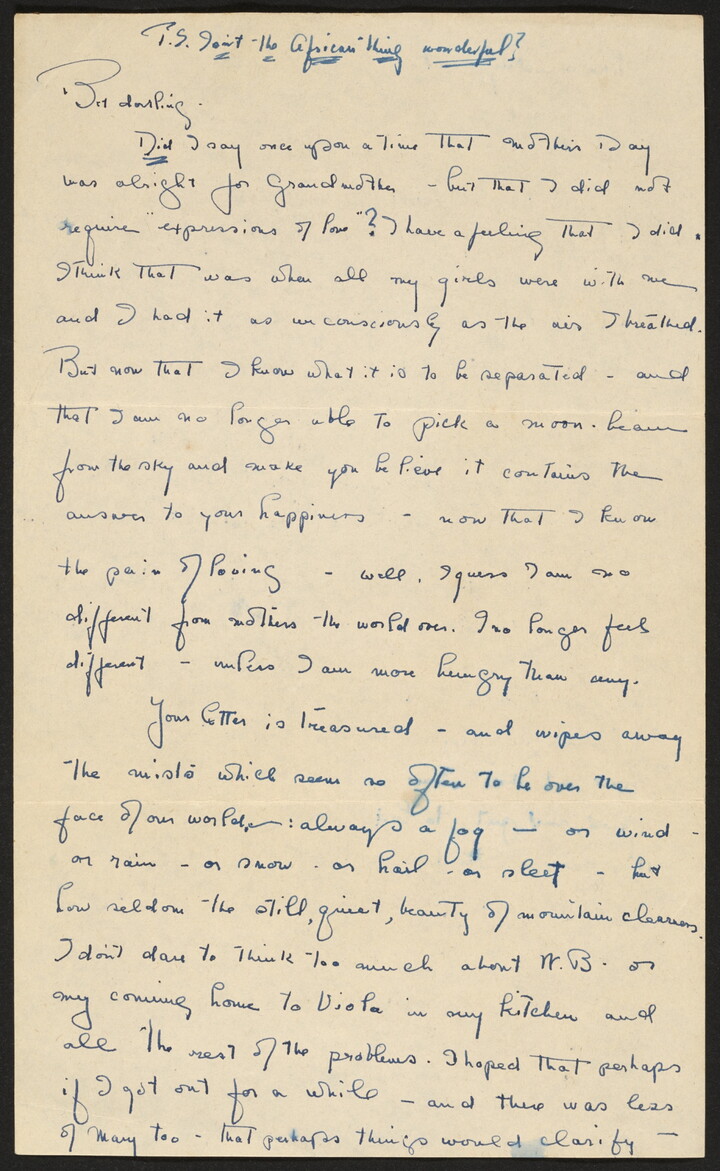 P.S. Isn't the African thing wonderful?
Bet darling -
Did I say once upon a time that mothers Day
was alright for Grandmother - but that I did not
require "expressions of love"? I have a feeling that I did.
I think that was when all my girls were with me
and I had it as unconsciously as the air I breathed.
But now that I know what it is to be separated - and
that I am no longer able to pick a moon-beam
from the sky and make you believe it contains the
answer to your happiness - now that I know
the pain of loving - well, I guess I am no
different from mothers the world over. I no longer feel
different - unless I am more hungry than any.
Your letter is treasured - and wipes away
the mists which seem so often to be over the
face of our world: always a fog - or wind -
or rain - or snow - or hail - or sleet - but
how seldom the still, quiet, beauty of mountain clearness.
I don't dare to think too much about N.B. or
my coming home to Viola in my kitchen and
all the rest of the problems. I hoped that perhaps
if I got out for a while - and there was less
of Mary too - that perhaps things would clarify -